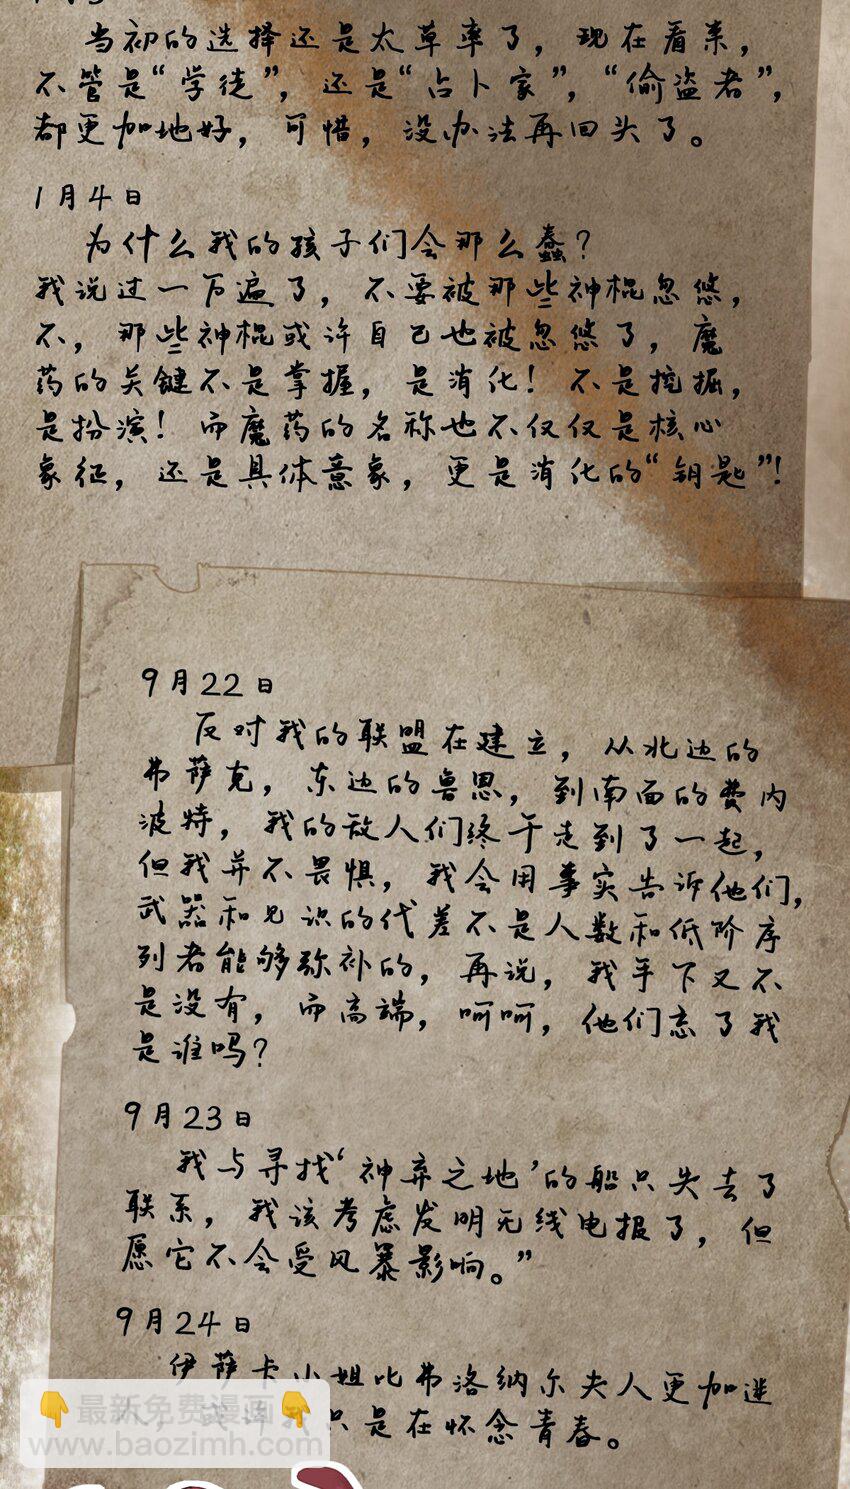 当初的选择还是太草率了，现在看来，
不管是“学徒”，还是“占卜家”，“偷盗者”，
都更加地好，可惜，没办法再回头了。
1月4日
为什么我的孩子们会那么蠢？
我说过一万遍了，不要被那些神棍忽悠，
不，那些神棍或许自己也被忽悠了，魔
药的关键不是掌握，是消化！不是挖掘，
是扮演！而魔药的名称也不仅仅是核心
象征，还是具体意象，更是消化的“钥匙”！
9月22日
反对我的联盟在建立，从北边的
弗萨克，东边的鲁恩，到南面的费内
波特，我的敌人们终于走到了一起，
但我并不畏惧，我会用事实告诉他们，
武器和见识的代差不是人数和低阶序
列者能够弥补的，再说，我手下又不
是没有，而高端，呵呵，他们忘了我
是谁吗？
9月23日
我与寻找‘神弃之地’的船只失去了
联系，我该考虑发明无线电报了，但
愿它不会受风暴影响。”
9月24日
伊萨卡小姐比弗洛纳尔夫人更加迷
人，或许我只是在怀念青春。
最新免费漫画
www.baozimh.com